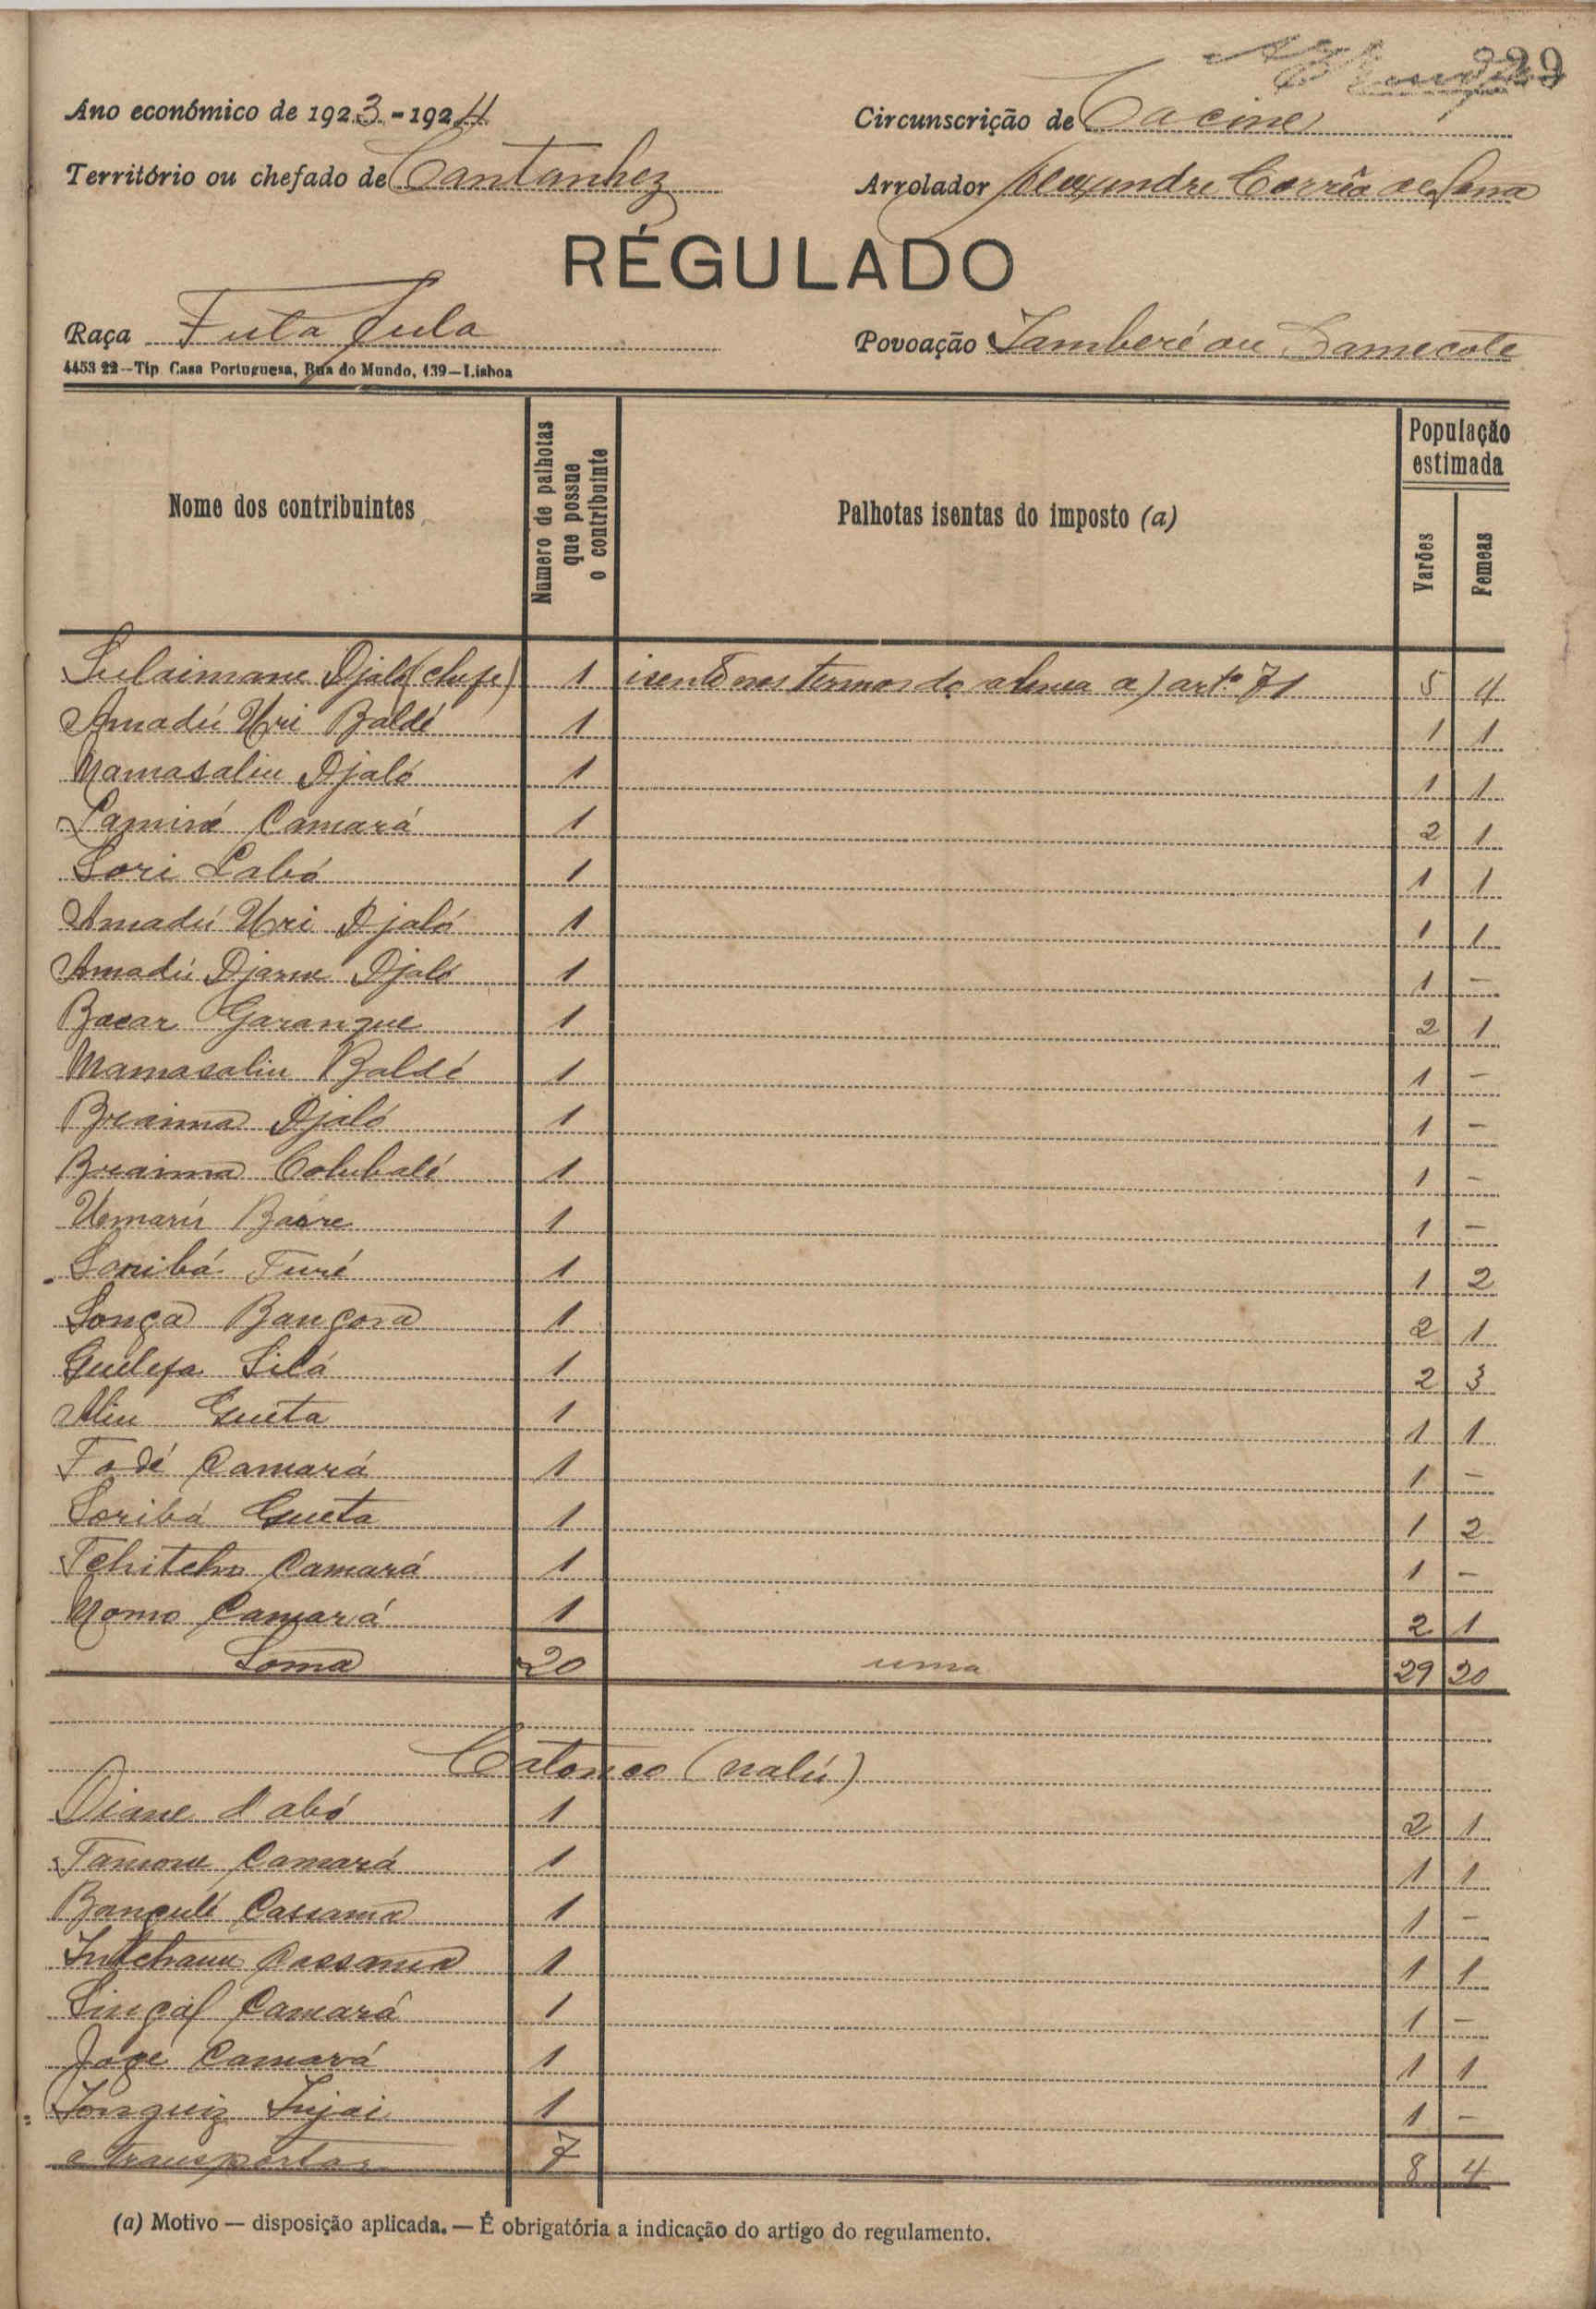 229
Ano económico de 1923-1924
Circunscrição de Cacine
Território ou chefado de Cantanhez
Arrolador Alexandre Corrêa de Sena
RÉGULADO
Raça Futa fula
Povoação Jamberé ou Damecote
4453 22--Tip Casa Portuguesa, Rua do Mundo, 139--Lisboa
Nome dos contribuintes
Número de palhotas que possue o contribuinte
Palhotas isentas do imposto (a)
População estimada
Varões
Femeas
Sulaimane Djaló (chefe) 1 isento nos termos da alinea a) artº 71 5 4
Amadú Uri Baldé 1 1 1
Mamasaliu Djaló 1 1 1
Laminé Camará 1 2 1
Sori Labó 1 1 1
Amadú Uri Djaló 1 1 1
Amadú Djame Djaló 1 1 -
Bacar Garanque 1 2 1
Mamasaliu Baldé 1 1 -
Breaima Djaló 1 1 -
Breaima Colubalé 1 1 -
Umarú Baire 1 1 -
Soribá Turé 1 1 2
Songa Bangora 1 2 1
Guelefa Silá 1 2 3
Aliu Gueta 1 1 1
Fodé Camará 1 1 -
Soribá Gueta 1 1 2
Tchitcho Camará 1 1 -
Momo Camará 1 2 1
Soma 20 uma 29 20
Catomeo (nalú)
Diane Labó 1 2 1
Tamone Camará 1 1 1
Bangulé Cassama 1 1 -
Intchaun Cassama 1 1 1
Camará 1 1 -
Camará 1 1 1
Injai 1 1 -
a transportar 7 8 4
(a) Motivo — disposição aplicada. — É obrigatória a indicação do artigo do regulamento.